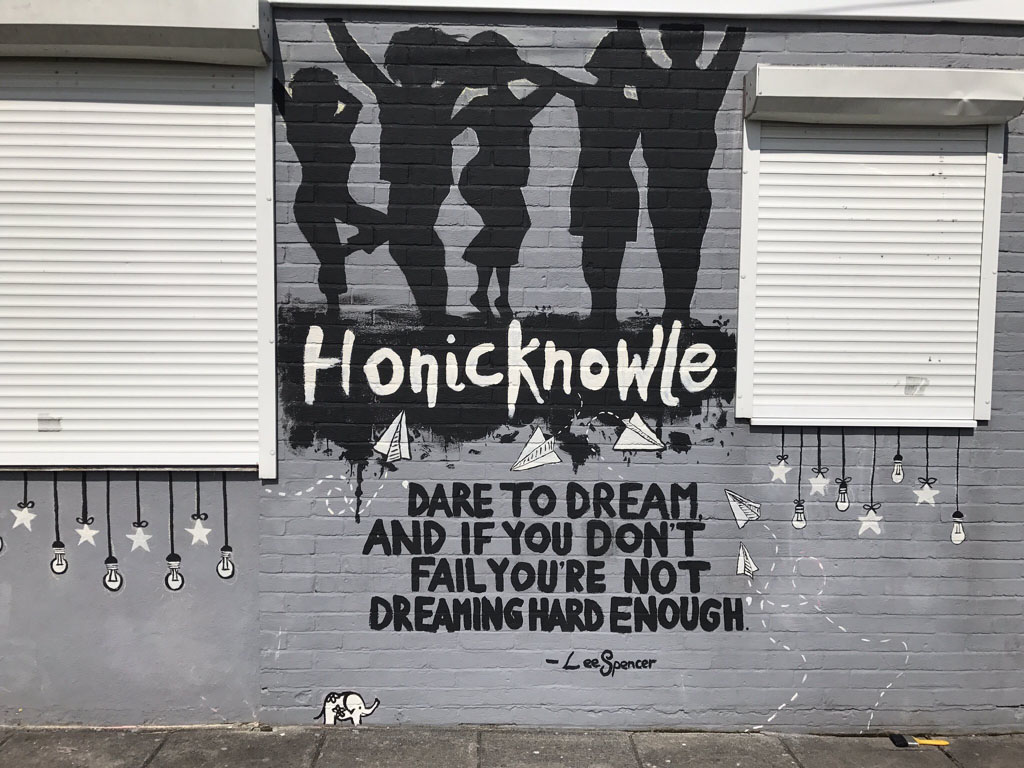 Honicknowle
DARE TO DREAM.
AND IF YOU DON'T
FAIL YOU'RE NOT
DREAMING HARD ENOUGH.
- Lee Spencer